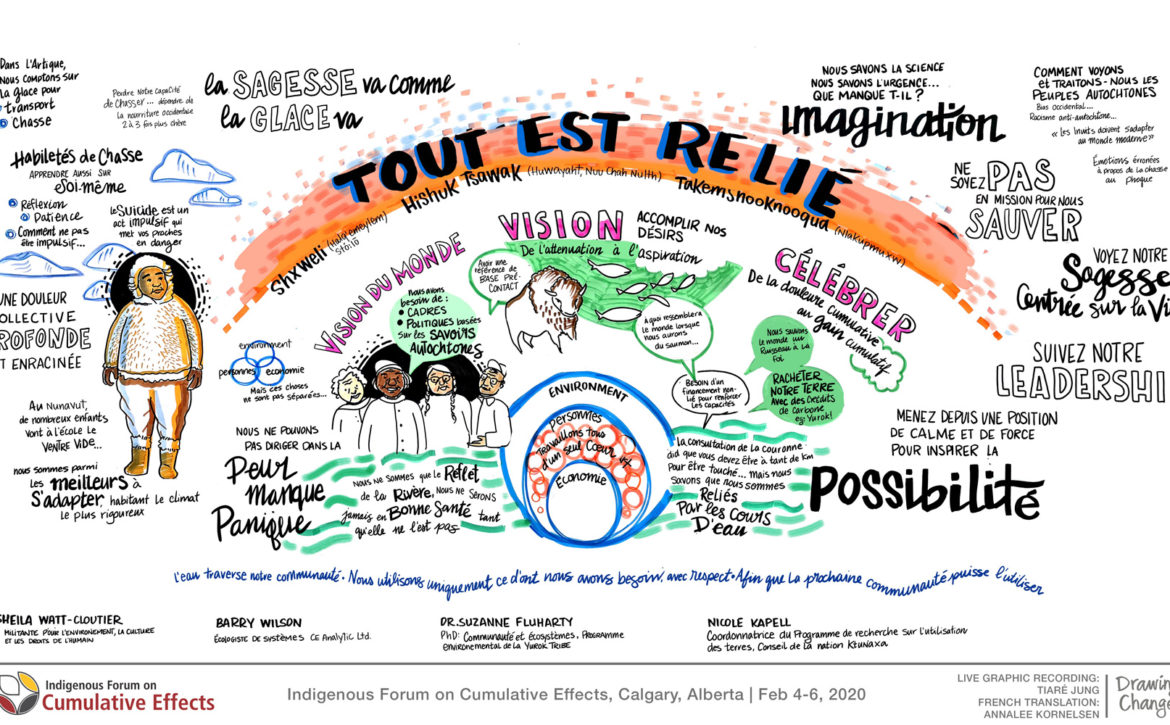 Dans l'Artique,
Nous comptons sur
la glace pour
transport
Chasse
Perdre notre capacité
de chasser... dépendre de
la nourriture occidentale
2 à 3 fois plus chère
la SAGESSE va comme
la GLACE va
Habiletés de Chasse
APPRENDRE AUSSI SUR
Soi-même
Réflexion
Patience
Comment ne pas
être impulsif...
le Suicide est un
act impulsif qui
met vos proches
en danger
UNE DOULEUR
COLLECTIVE
PROFONDE
ET ENRACINÉE
Au Nunavut,
de nombreux enfants
vont à l'école le
VENTRE VIDE...
nous sommes parmi
Les meilleurs à
S'adapter, habitant le climat
le plus rigoureux
TOUT EST RELIÉ
Shxweli (Halq'eméylem)
Stó:lō
Hishuk Tsawak (Huwayaht, Nuu Chah Nulth)
Takemsnooknooqua (Nlakupmxw)
VISION DU MONDE
Nous avons
besoin de :
CADRES
POLITIQUES basées
sur les SAVOIRS
Autochtones
environment
personnes
économie
Mais ces choses
ne sont pas séparées...
VISION
ACCOMPLIR NOS
DÉSIRS
De l'attenuation à l'aspiration
Avoir une
référence de
BASE PRÉ-
CONTACT
À quoi ressemblera
le monde lorsque
nous aurons
du saumon...
CÉLÉBRER
De la douleure cumulative
au gain cumulatif
Nous sauvons
le monde un
Ruisseau à la
foi
Besoin d'un
financement non-
lié pour renforcer
les capacités
RACHETER
NOTRE TERRE
Avec des Crédits
de Carbone
eg: Yurok!
NOUS NE POUVONS
PAS DIRIGER DANS LA
Peur
Manque
Panique
Nous ne sommes que le Reflet
de la Rivère, Nous ne serons
jamais en Bonne Santé tant
qu'elle ne l'est pas
ENVIRONMENT
Personnes
Travaillons tous
d'un seul Cœur
Économie
La consultation de la couronne
did que vous devez être à tant de km
Pour être touché... Mais nous
Savons que nous sommes
Reliés
Par les Cours
D'eau
NOUS SAVONS LA SCIENCE
NOUS SAVONS L'URGENCE...
QUE MANQUE T-IL ?
Imagination
COMMENT VOYONS
et TRAITONS-NOUS LES
PEUPLES AUTOCHTONES
Bias occidental...
Racisme anti-autochtone...
« les Inuits doivent s'adapter
au Monde moderne?»
NE
SOYEZ PAS
EN MISSION POUR NOUS
SAUVER
Émotions érronées
à propos de la chasse
au phoque
VOYEZ NOTRE
Sagesse
Centrée sur la Vi
SUIVEZ NOTRE
LEADERSHI
MENEZ DEPUIS UNE POSITION
DE CALME ET DE FORCE
POUR INSPIRER LA
POSSIBILITÉ
L'eau traverse notre communauté. Nous utilisons uniquement ce d'ont nous avons besoin, avec respect. Afin que la prochaine communauté puisse l'utiliser
SHEILA WATT-CLOUTIER
MILITANTE POUR L'ENVIRONEMENT, LA CULTURE
ET LES DROITS DE L'HUMAIN
BARRY WILSON
ÉCOLOGISTE DE SYSTÈMES CE Analytic Ltd.
DR. SUZANNE FLUHARTY
PhD: Communauté et écosystèmes, PROGRAMME
ENVIRONEMENTAL de la YUROK TRIBE
NICOLE KAPELL
Coordonnatrice du Programme de recherche sur l'utilisation
des terres, Conseil de la nation Ktunaxa
Indigenous Forum on
Cumulative Effects
Indigenous Forum on Cumulative Effects, Calgary, Alberta | Feb 4-6, 2020
LIVE GRAPHIC RECORDING:
TIARÉ JUNG
FRENCH TRANSLATION:
ANNALEE KORNELSEN
Drawing
Change